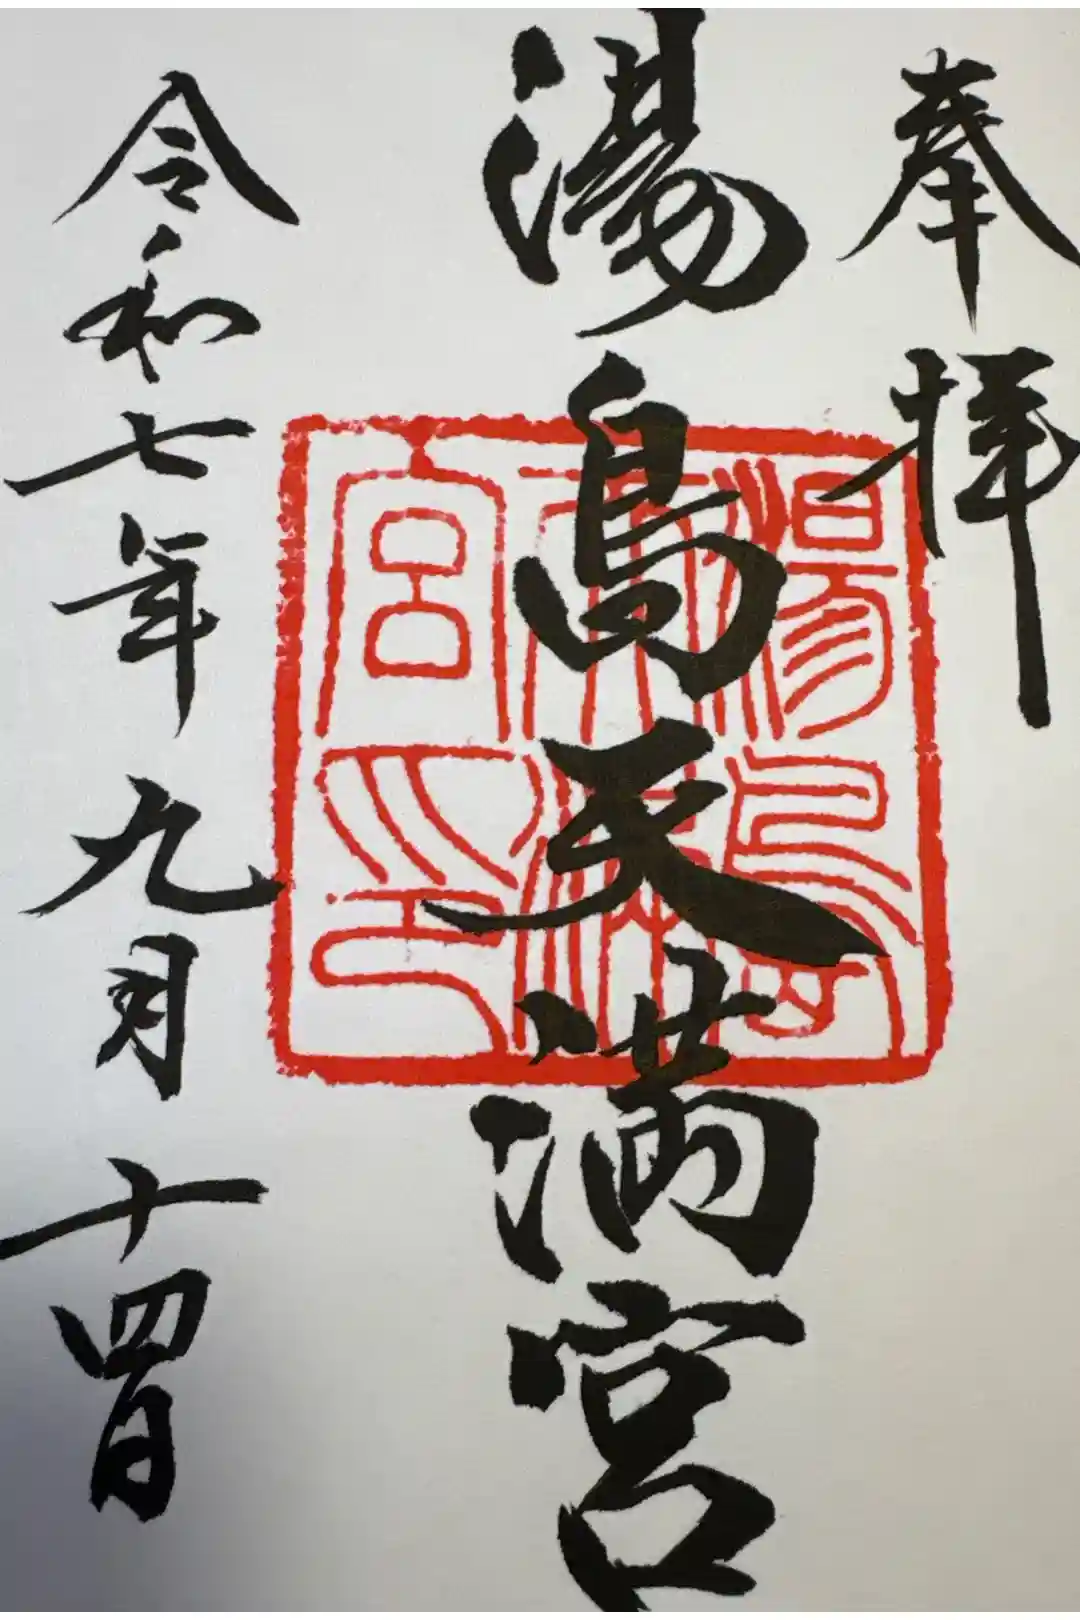 奉拝
湯島天満宮
令和七年九月十四日
湯島
天満
宮印